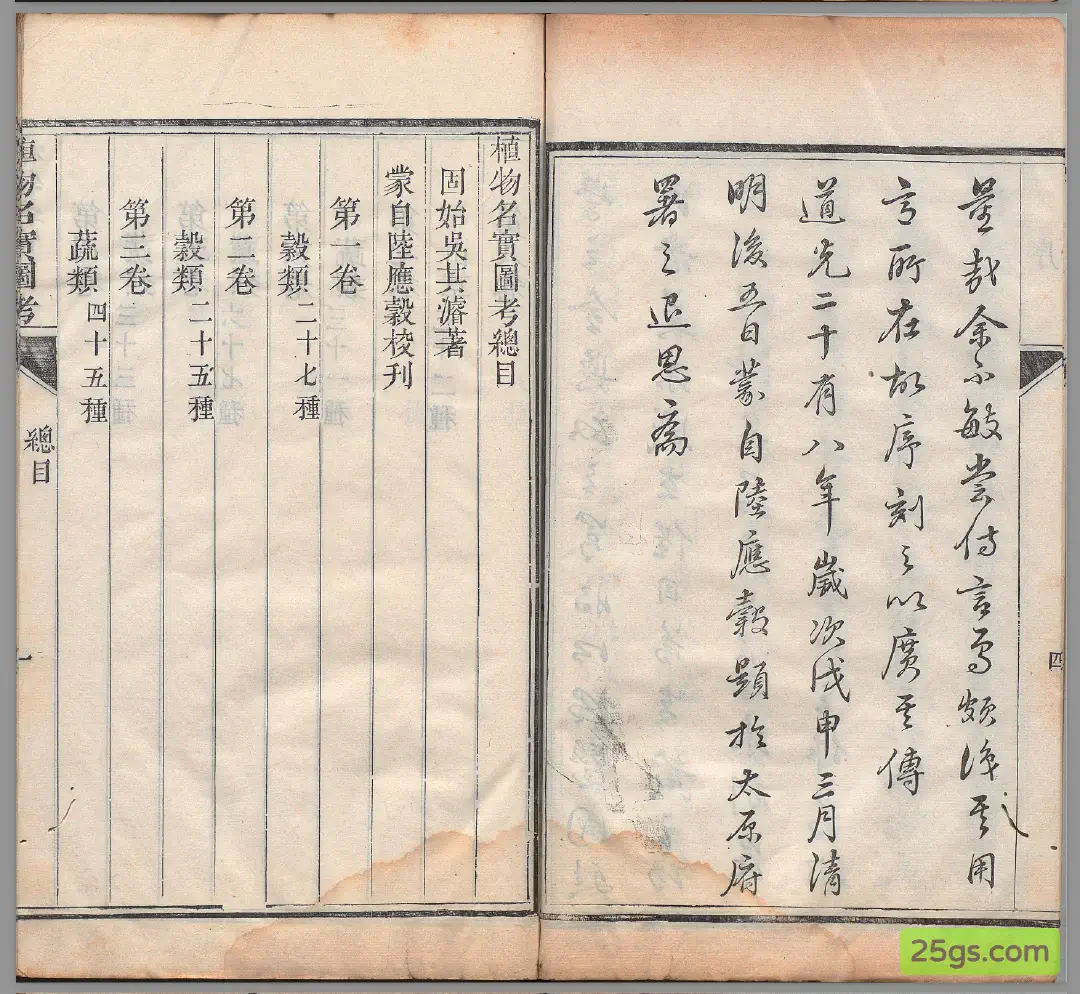 量哉余不敏嘗侍言焉頗識其用
意所在故序刻之以廣其傳
道光二十有八年歲次戊申三月清
明後五日蒙自陸應穀題於太原府
署之退思齋
四
植物名實圖考總目
固始吳其濬著
蒙自陸應穀校刊
第一卷
穀類二十七種
第二卷
穀類二十五種
第三卷
蔬類四十五種
植物名實圖考
總目
一
25gs.com